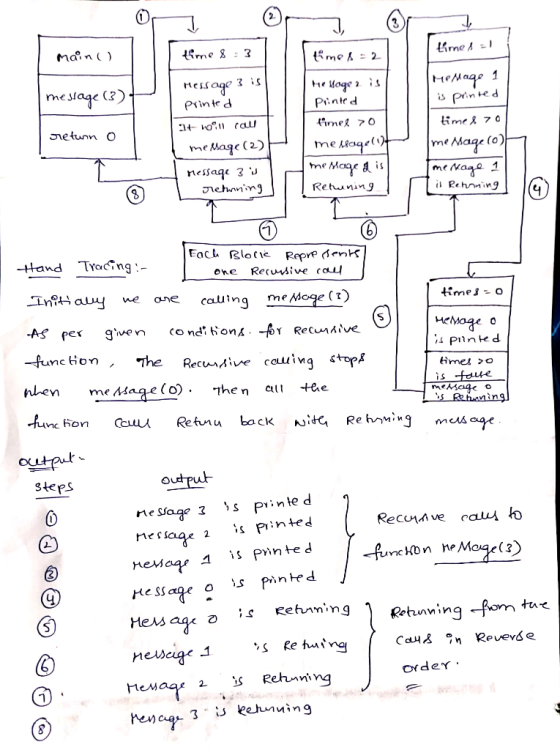 ①
②
③
main()
message(3)
return 0
times : 3
Message 3 is
printed
It will call
message(2)
message 3 is
returning
times = 2
Message 2 is
printed
times >0
message(1)
message 2 is
Returning
times = 1
Message 1
is printed
times >0
message(0)
message 1
is Returning
④
⑧
⑦
⑥
Each Block Represents
one Recursive call
times = 0
Message 0
is printed
times >0
is false
message 0
is Returning
⑤
Hand Tracing:-
Initially we are calling message(3)
As per given conditions. for Recursive
function, The Recursive calling stops
when message(0). Then all the
function calls Return back with Returning message.
output-
Steps output
① Message 3 is printed
② Message 2 is printed
③ Message 1 is printed
④ Message 0 is printed
Recursive calls to
function message(3)
⑤ Message 0 is Returning
⑥ Message 1 is Retuing
⑦ Message 2 is Returning
⑧ Message 3 is Returning
Returning from the
calls in Reverse
order.